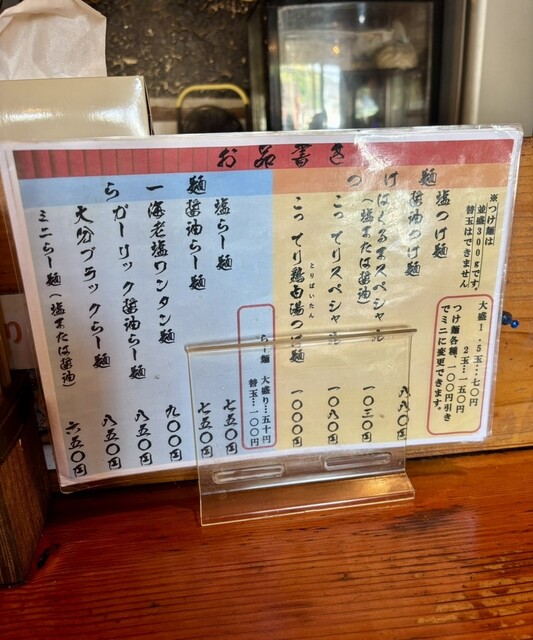 お品書き
※つけ麺は
並盛300gです。
替玉はできません
大盛1.5玉…七〇円
2玉…一五〇円
つけ麺各種、一〇〇円引き
でミニに変更できます。
つけ麺
塩つけ麺
醤油つけ麺 八八〇円
はくるまスペシャル
(塩または醤油) 一〇三〇円
こってりスペシャル 一〇八〇円
こってり鶏白湯つけ麺 一〇〇〇円
とりぱいたん
らー麺 大盛り…五十円
替玉…一〇〇円
らー麺
塩らー麺 七五〇円
醤油らー麺 七五〇円
海老塩ワンタン麺 九〇〇円
ガーリック醤油らー麺 八五〇円
大分ブラックらー麺 八五〇円
ミニらー麺(塩または醤油) 六五〇円